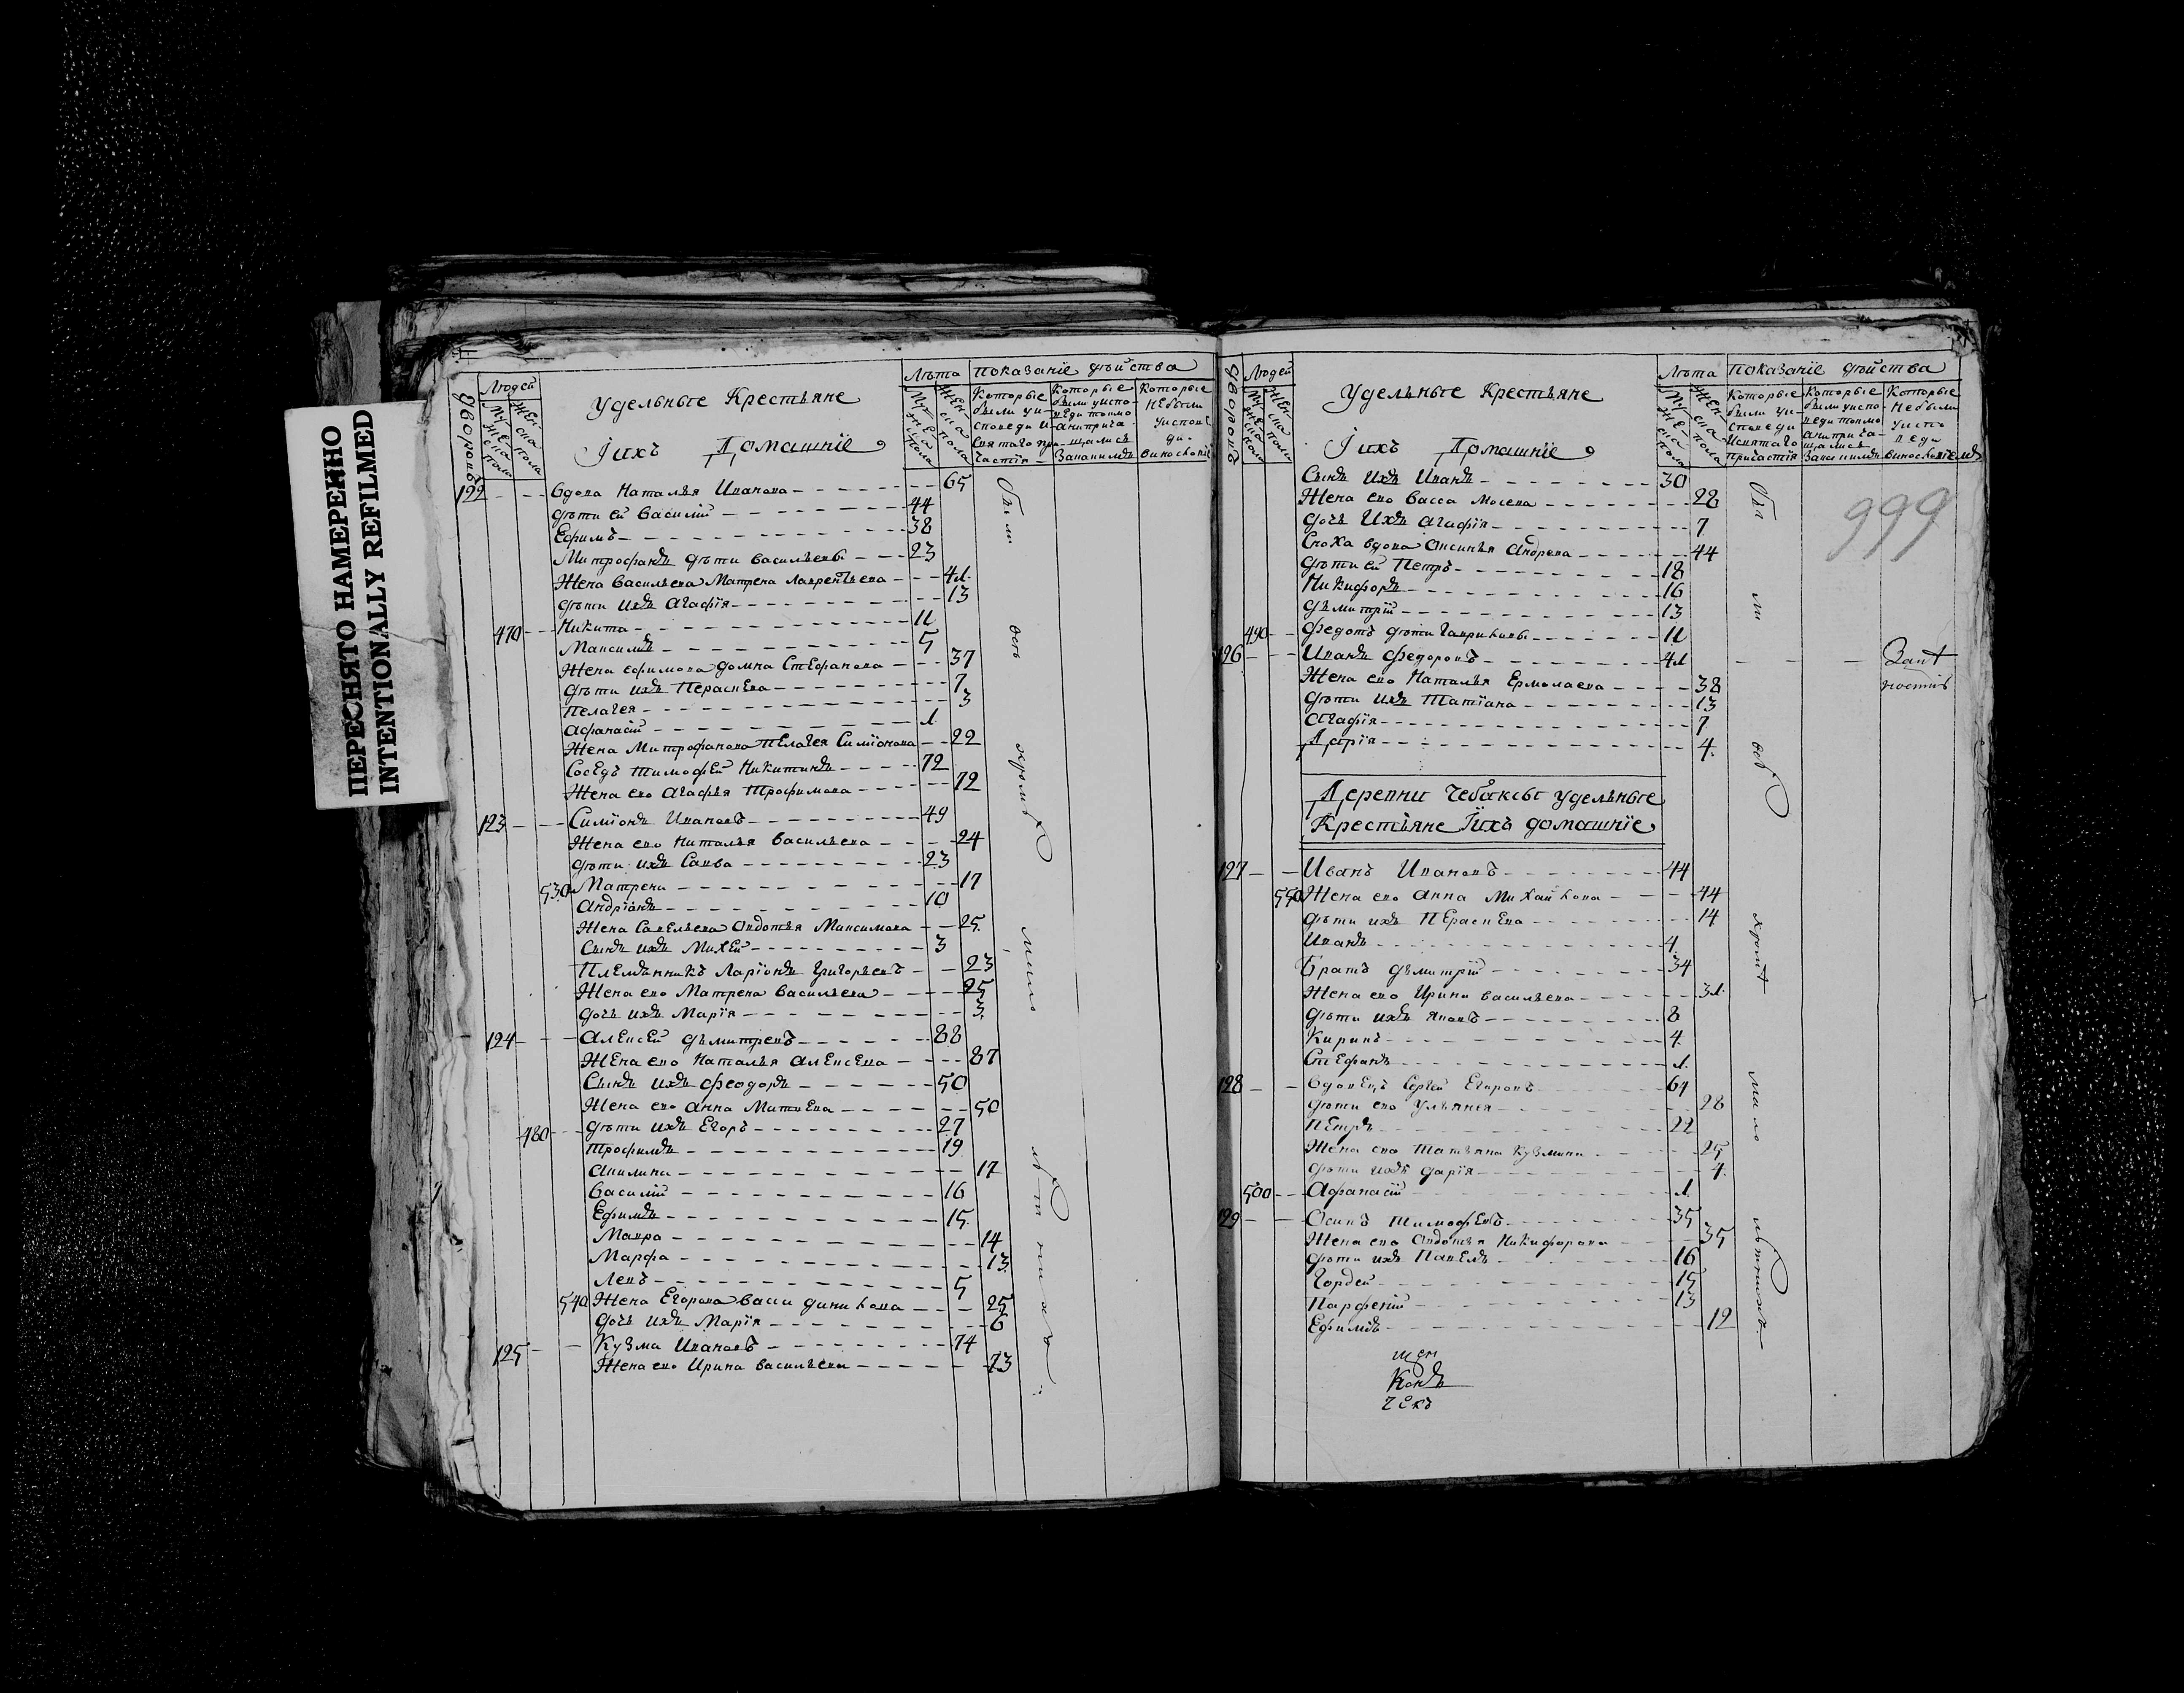 ПЕРЕСНЯТО НАМЕРЕННО
INTENTIONALLY REFILMED
дворовъ
Людей
Мужеска пола
Женска пола
Удельные Крестьяне
Iихъ Домашнiе
Лѣта
Мужеска пола
Женска пола
показанiе дѣйства
Которые были у исповеди и святаго причастiя
Которые были у исповеди токмо а не причащались
Которые не были у исповеди
122 Вдова Наталья Иванова 65
дѣти ей Василiй 44
Ефимъ 38
Митрофанъ дѣти Васильевы 23
Жена Васильева Матрена Лаврентьева 41
дѣти ихъ Агафiя 13
470 Никита 11
Максимъ 5
Жена Ефимова Домна Стефанова 37
дѣти ихъ Параскева 7
Пелагея 3
Афанасiй 1
Жена Митрофанова Пелагея Симiонова 22
Соседъ Тимофей Никитинъ 72
Жена ево Агафья Трофимова 72
123 Симiонъ Ивановъ 49
Жена ево Наталья Васильева 24
дѣти ихъ Савва 23
530 Матрена 17
Андрiянъ 10
Жена Савельева Авдотья Максимова 25
Сынъ ихъ Михей 3
Племянникъ Ларiонъ Григорьевъ 23
Жена ево Матрена Васильева 25
дочь ихъ Марiя 3
124 Алексей Дьмитревъ 88
Жена ево Наталья Алексеева 87
Сынъ ихъ Феодоръ 50
Жена ево Анна Матвева 50
480 дѣти ихъ Егоръ 27
Трофимъ 19
Акилина 17
Василiй 16
Ефимъ 15
Мавра 14
Марфа 13
Левъ 5
540 Жена Егорова Васса Данилова 25
дочь ихъ Марiя 6
125 Кузма Ивановъ 74
Жена ево Ирина Васильева 73
Были всѣ кромѣ мало лѣтнихъ
дворовъ
Людей
Мужеска пола
Женска пола
Удельные Крестьяне
Iихъ Домашнiе
Лѣта
Мужеска пола
Женска пола
показанiе дѣйства
Которые были у исповеди и святаго причастiя
Которые были у исповеди токмо а не причащались
Которые не были у исповеди
999
Сынъ ихъ Иванъ 30
Жена ево Васса Мосева 28
дочь ихъ Агафiя 7
Сноха вдова Аксинья Андрева 44
дѣти ей Петръ 18
Никифоръ 16
Дьмитрiй 13
490 Федотъ дѣти Гавриловы 11
126 Иванъ Федоровъ 41
Жена ево Наталья Ермолаева 38
дѣти ихъ Татiана 13
Агафiя 7
Дарiя 4
Деревни Чебаксы удельные
Крестьяне Iихъ домашнiе
127 Иванъ Ивановъ 44
550 Жена ево Анна Михайлова 44
дѣти ихъ Параскева 14
Иванъ 4
Братъ Дьмитрiй 34
Жена ево Ирина Васильева 31
дѣти ихъ Яковъ 8
Кирикъ 4
Стефанъ 1
128 Вдовецъ Сергей Егоровъ 64
дѣти ево Ульянея 28
Петръ 22
Жена ево Татьяна Кузмина 25
дѣти ихъ Дарiя 4
500 Афанасiй 1
129 Осипъ Тимофевъ 35
Жена ево Авдотья Никифорова 35
дѣти ихъ Павелъ 16
Гордей 15
Парфенiй 13
Ефимъ 12
кромѣ мало лѣтнихъ